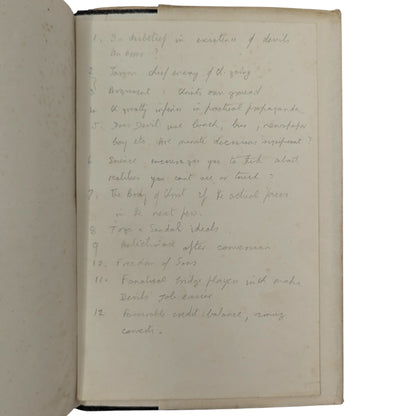 1. Is disbelief in existence of devils
an error?
2 Jargon chief enemy of Ch. going
3 Argument : Christs own ground
4 Ch greatly inferior in practical propaganda
5. Does Devil use lunch, bus, newspaper
boy etc. Are minute decisions insignificant?
6 Science encourages you to think about
realities you can't see or touch?
7. The Body of Christ & the actual faces
in the next pew.
8 Toga & Sandal ideals.
9 Anticlimax after conversion
10. Freedom of Sons
11. Fanatical bridge players
Devils' job easier
12 Favourable credit balance, running